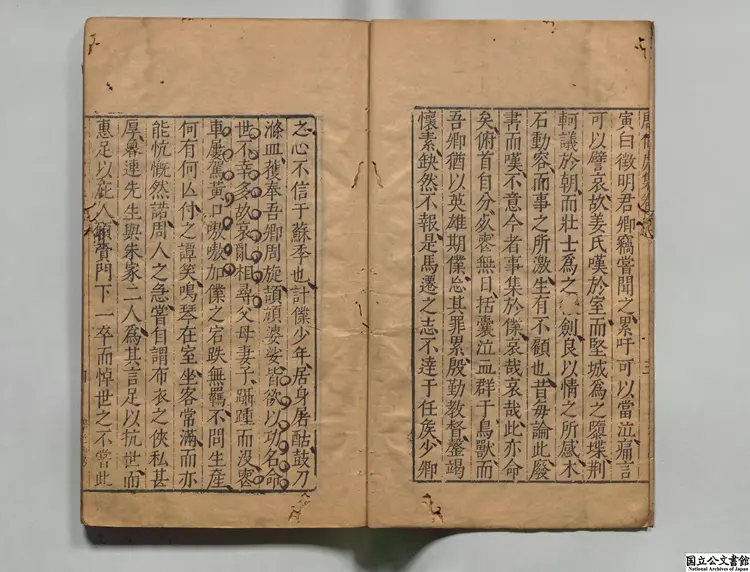 寅白徵明君卿竊嘗聞之累吁可以當泣痛言
可以譬哀故姜氏嘆於室而堅城爲之隳堞荆
軻議於朝而壯士爲之劍良以情之所感木
石動容而事之所激生有不顧也昔每論此廢
書而嘆不意今者事集於僕哀哉哀哉此亦命
矣俯首自分死喪無日括囊泣血群于鳥獸而
吾卿猶以英雄期僕忘其罪累殷勤教督罄竭
懷素缺然不報是馬遷之志不達于任矦少卿
之心不信于蘇季也計僕少年居身屠酤鼓刀
滌血獲奉吾卿周旋頡頏婆娑皆欲以功名命
世不幸多故哀亂相尋父母妻子躡踵而沒喪
車屢駕黃口嗷嗷加僕之宕跌無羈不問生產
何有何亾付之譚笑鳴琴在室坐客常滿而亦
能忼慨然諾周人之急嘗自謂布衣之俠私甚
厚魯連先生與朱家二人爲其言足以抗世而
惠足以庇人願賚門下一卒而悼世之不嘗此
国立公文書館
National Archives of Japan